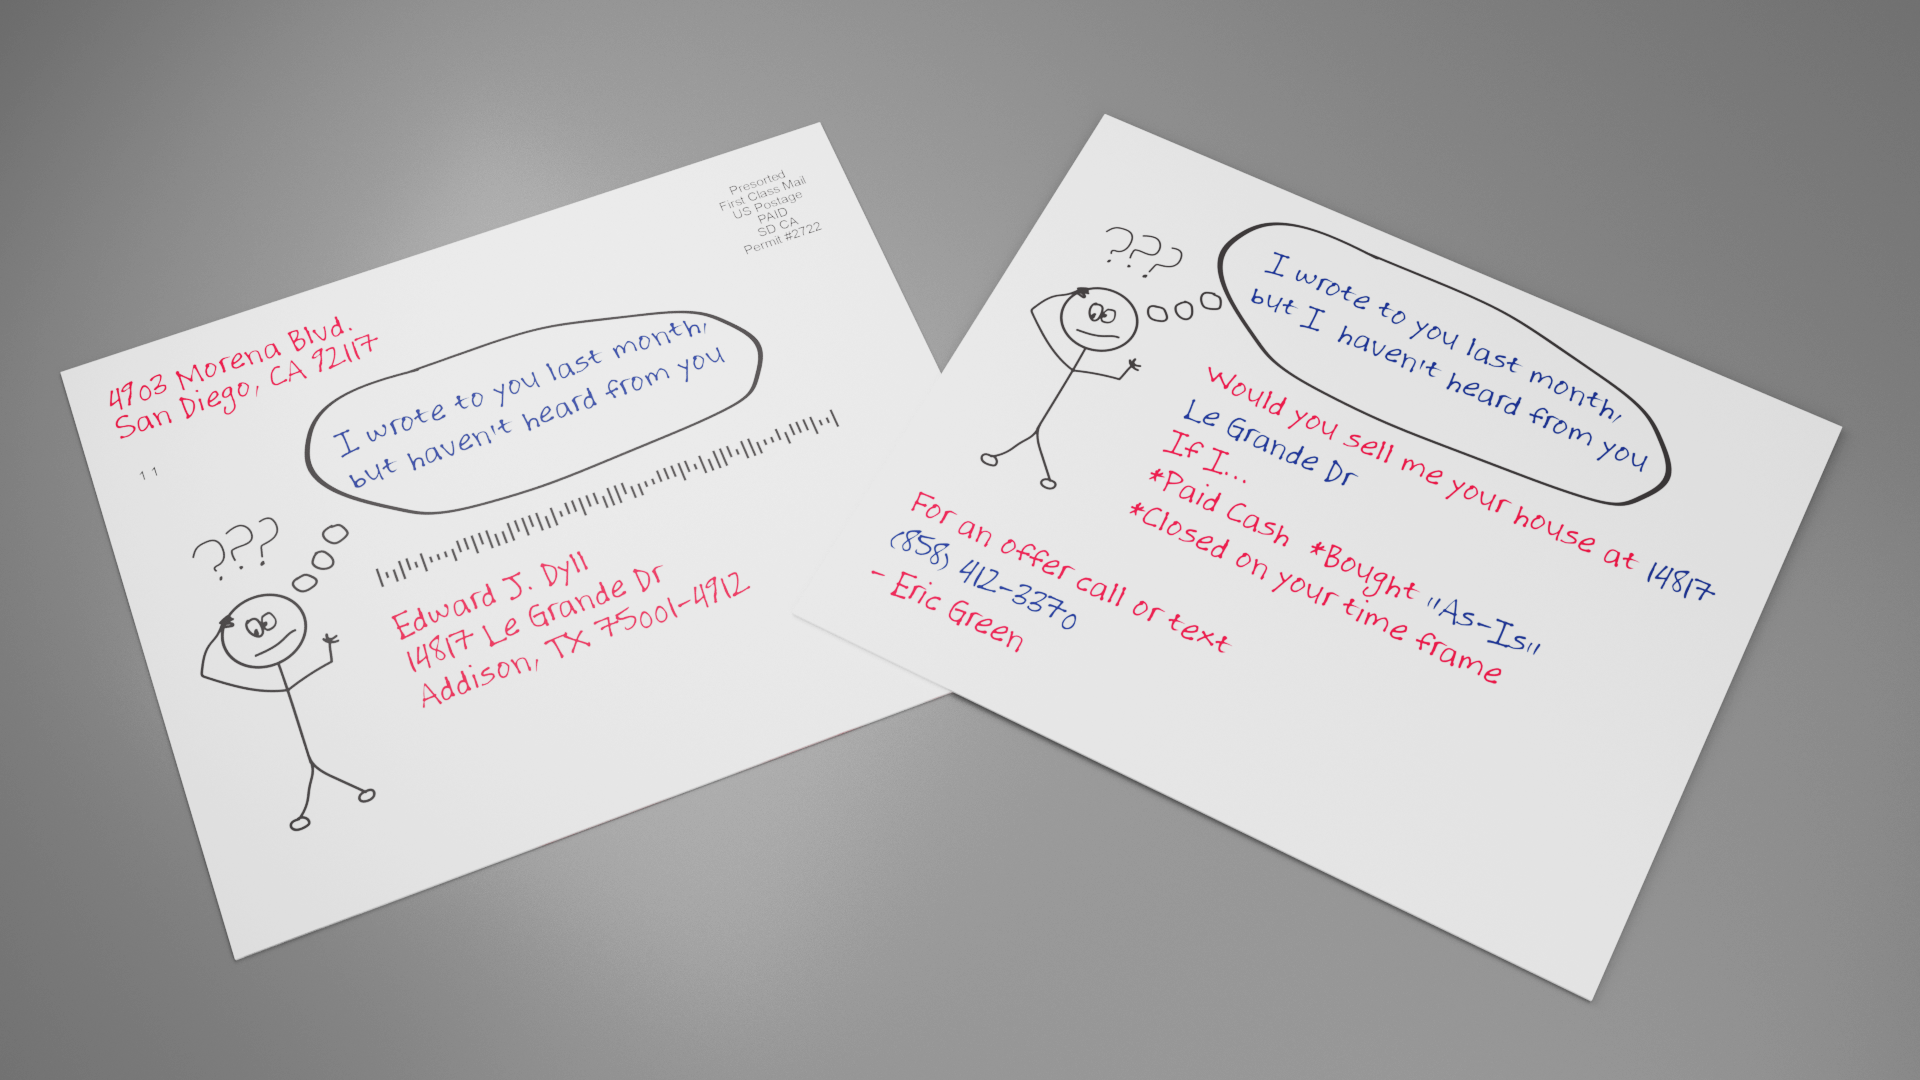 Presorted
First Class Mail
US Postage
PAID
SD CA
Permit #2722
4903 Morena Blvd.
San Diego, CA 92117
1 1
I wrote to you last month,
but haven't heard from you
???
Edward J. Dyll
14817 Le Grande Dr
Addison, TX 75001-4912
???
I wrote to you last month,
but I haven't heard from you
Would you sell me your house at 14817
Le Grande Dr
If I...
*Paid Cash *Bought "As-Is"
*Closed on your time frame
For an offer call or text
(858) 412-3370
- Eric Green